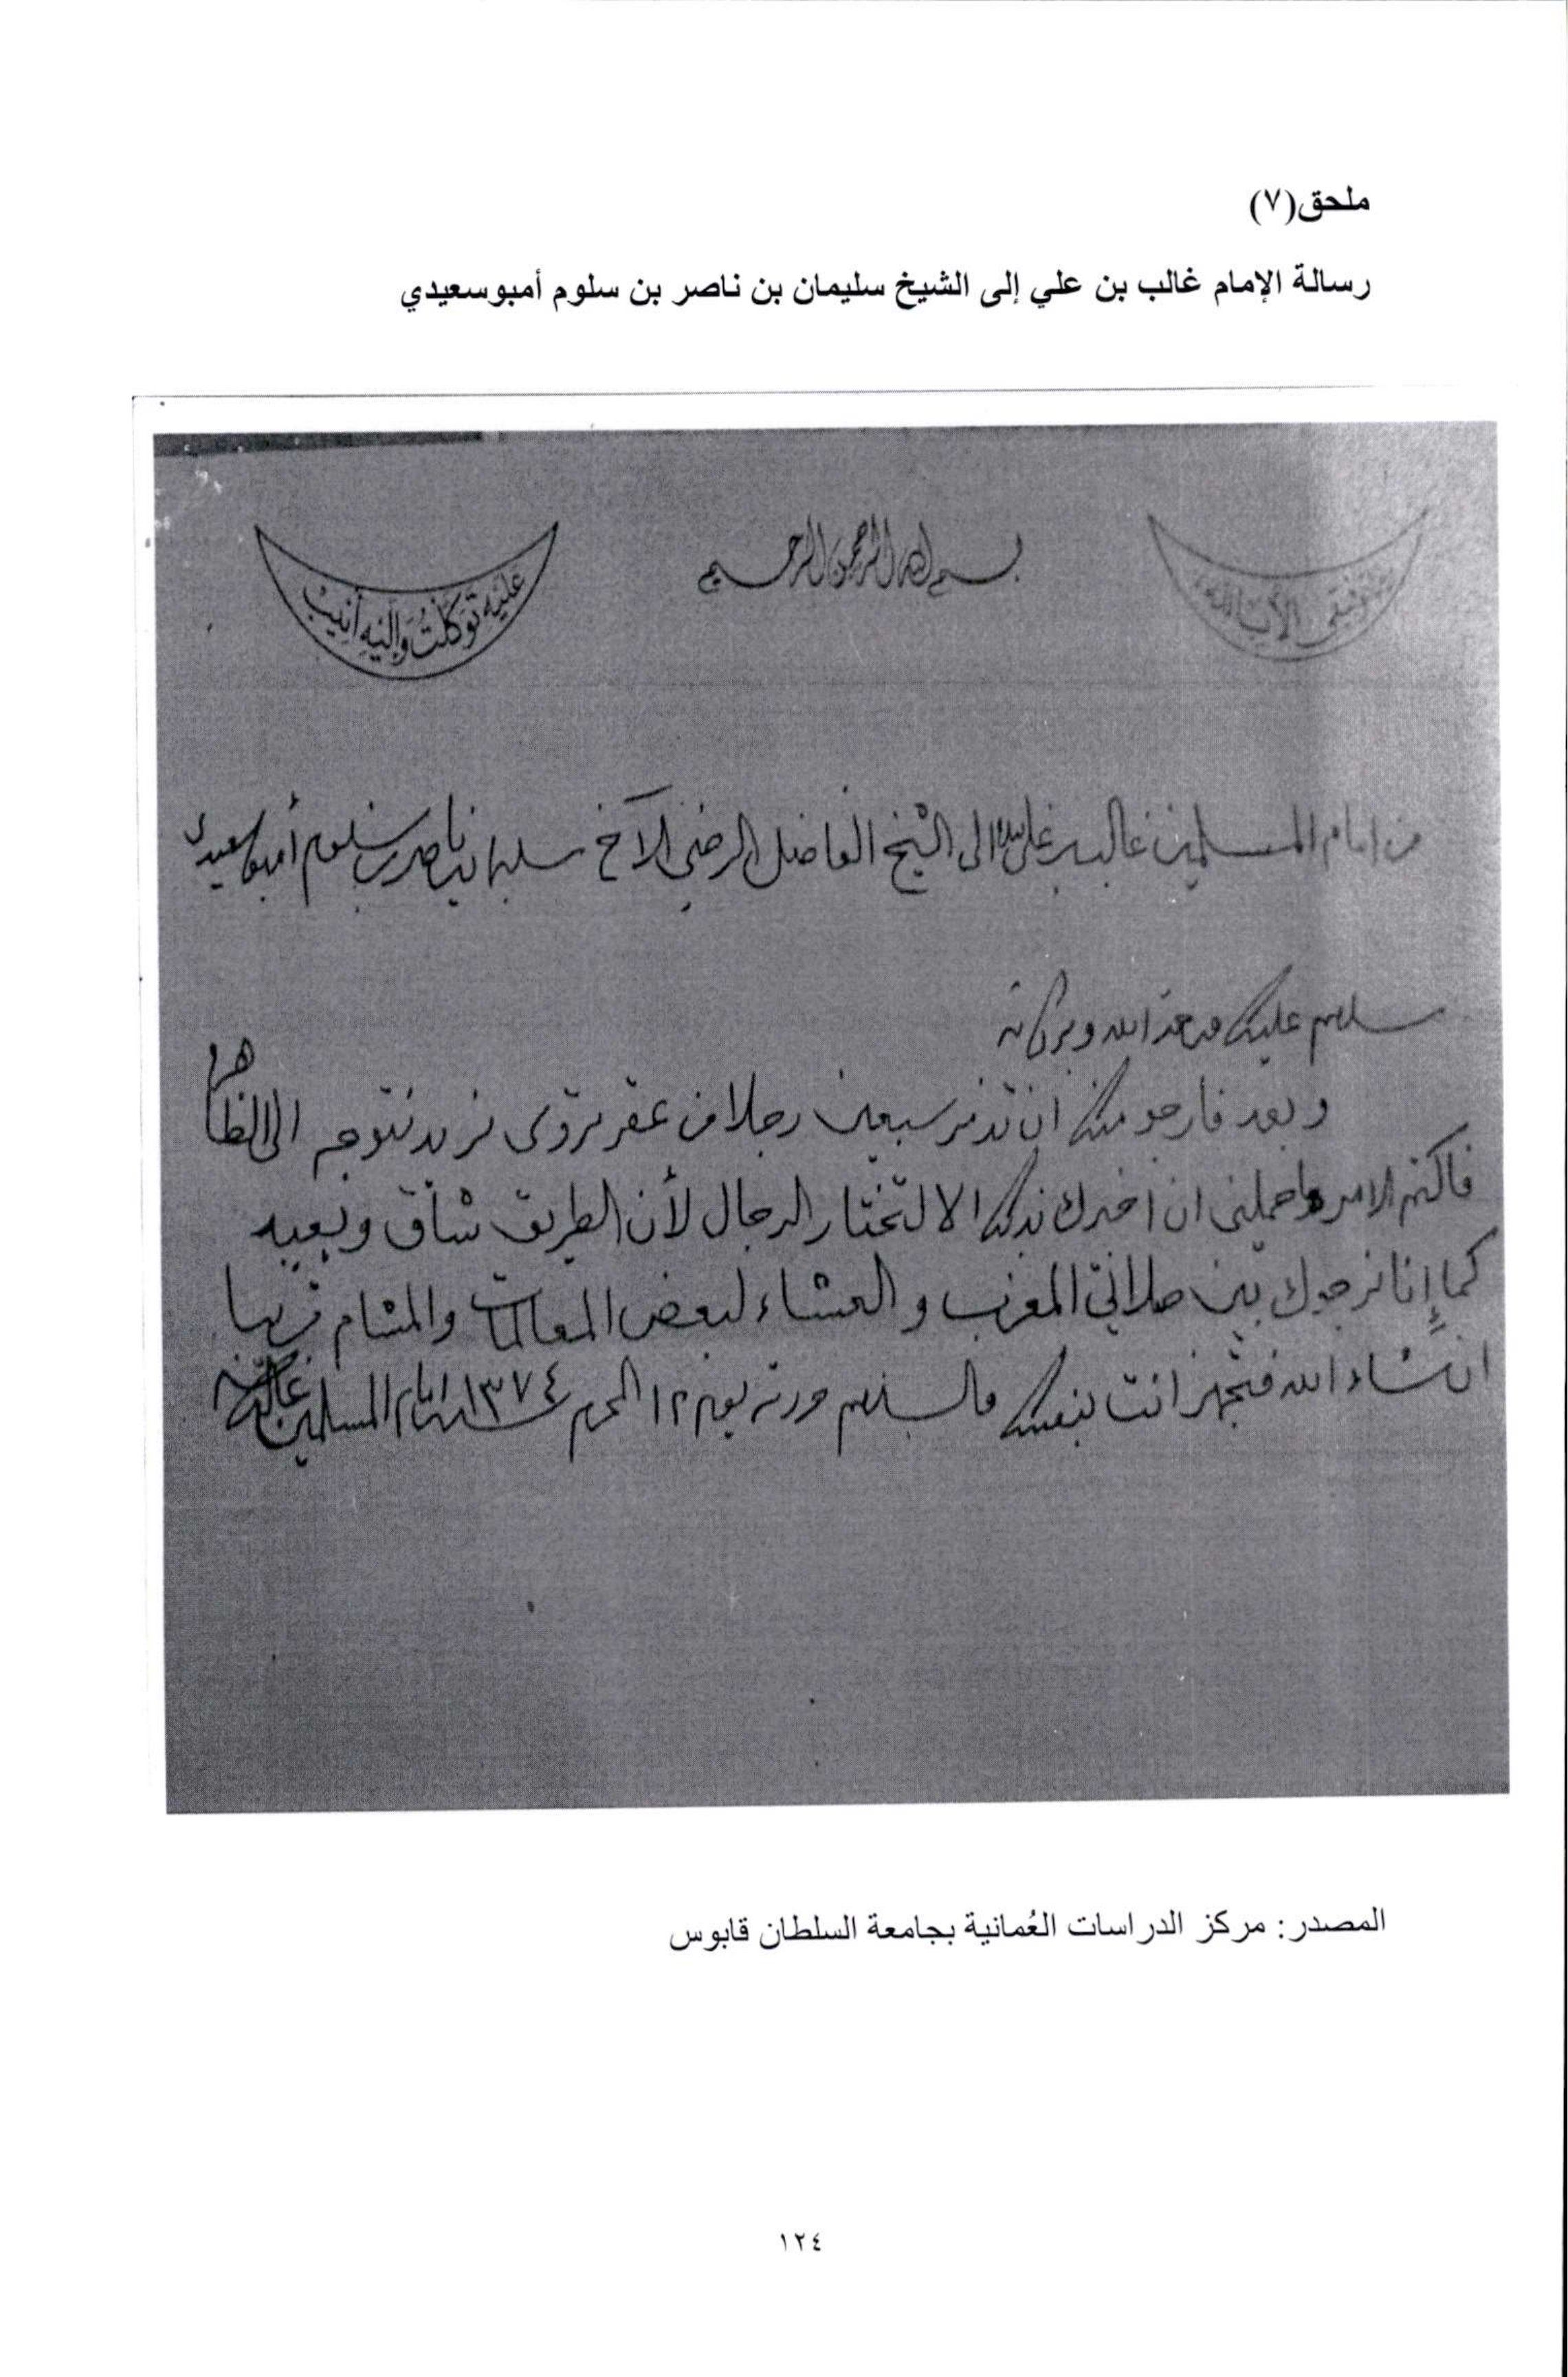 ملحق(٧)
رسالة الإمام غالب بن علي إلى الشيخ سليمان بن ناصر بن سلوم أمبوسعيدي
وما توفيقي إلا بالله
بسم الله الرحمن الرحيم
عَلَيْهِ تَوَكَّلْتُ وَإِلَيْهِ أُنِيبُ
من امام المسلمين غالب بن علي الى الشيخ الفاضل الرضي الأخ سليمان بن ناصر بن سلوم أمبوسعيدي
سلام عليك ورحمة الله وبركاته
وبعد فارجو منك ان تذمر سبعين رجلا من عقر نزوى نريد نتوجه الى الظاهره
فاكتم الامر وما حملني ان اخبرك بذلك الا لتختار الرجال لأن الطريق شاق وبعيد
كما إنا نرجوك بين صلاتي المغرب والعشاء لبعض المعاملات والمشام قريبا
انشاء الله فتجهز انت بنفسك والسلام حرر يوم ١٢ المحرم سنة ١٣٧٤ امام المسلمين غالب
المصدر: مركز الدراسات العُمانية بجامعة السلطان قابوس
١٢٤